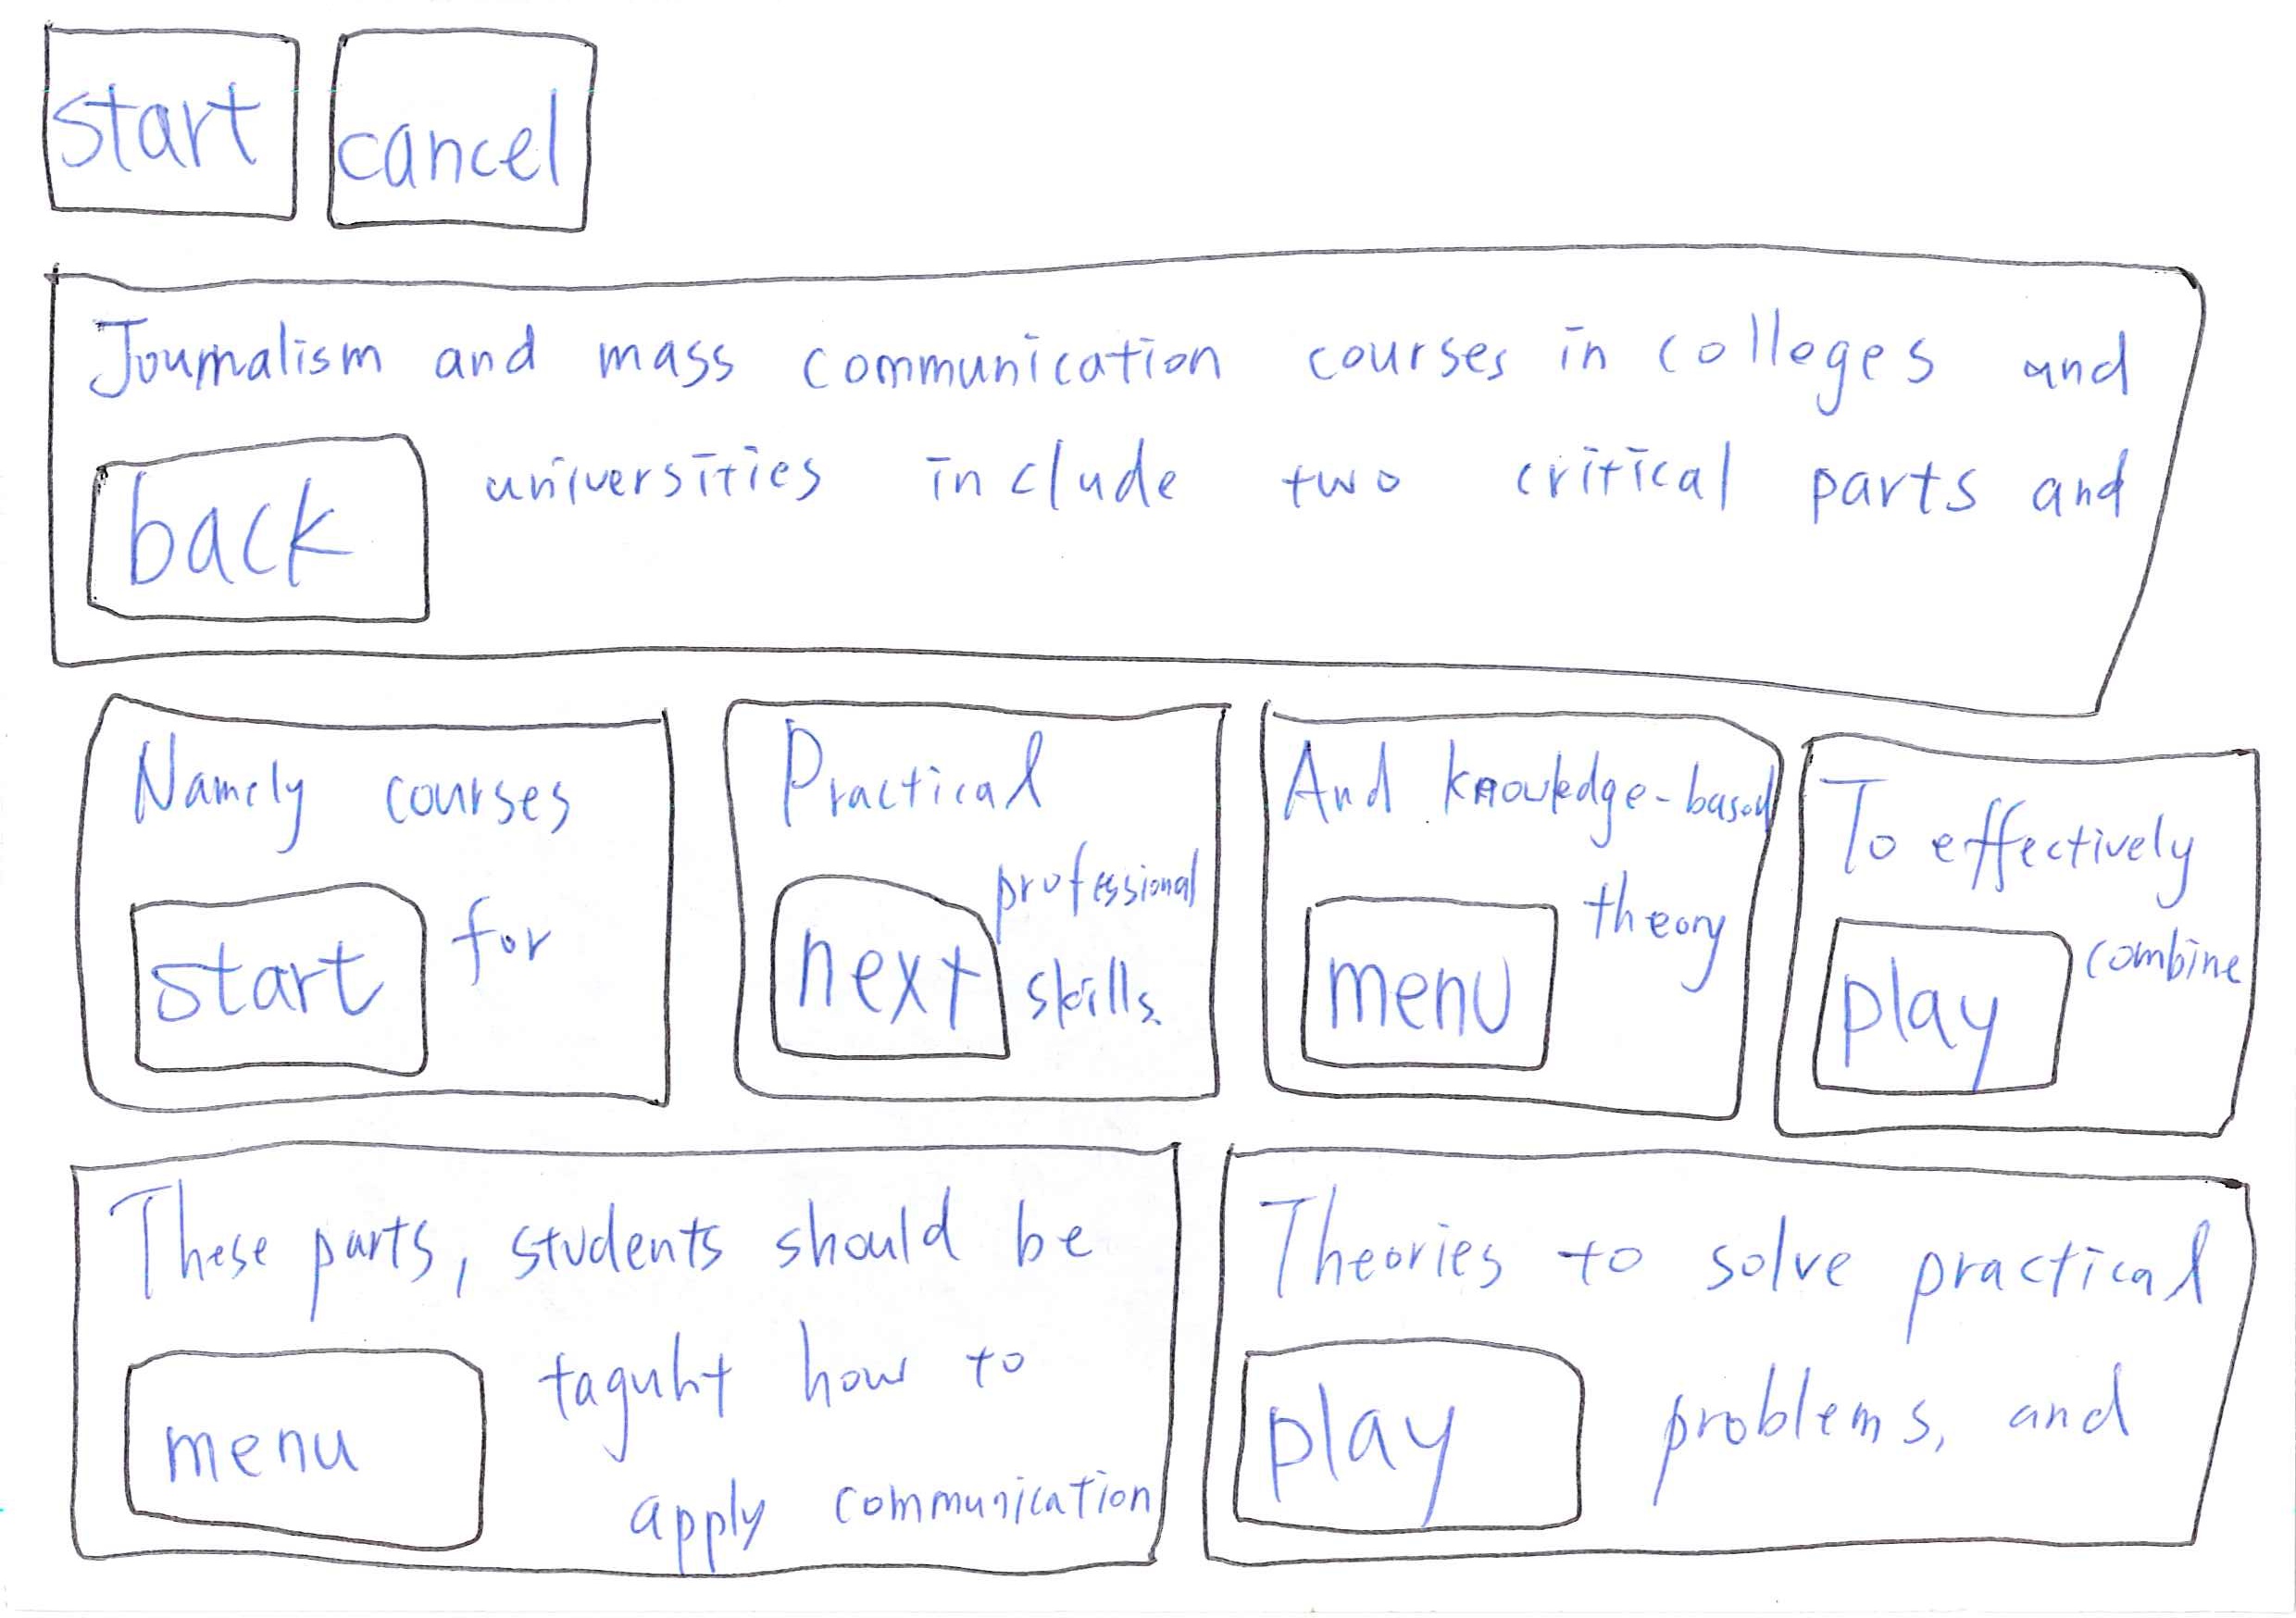 start cancel
Journalism and mass communication courses in colleges and
back universities include two critical parts and
Namely courses
start for
Practical
professional
next skills.
And knowledge-based
theory
menu
To effectively
play combine
These parts, students should be
taguht how to
menu
apply communication
Theories to solve practical
play problems, and